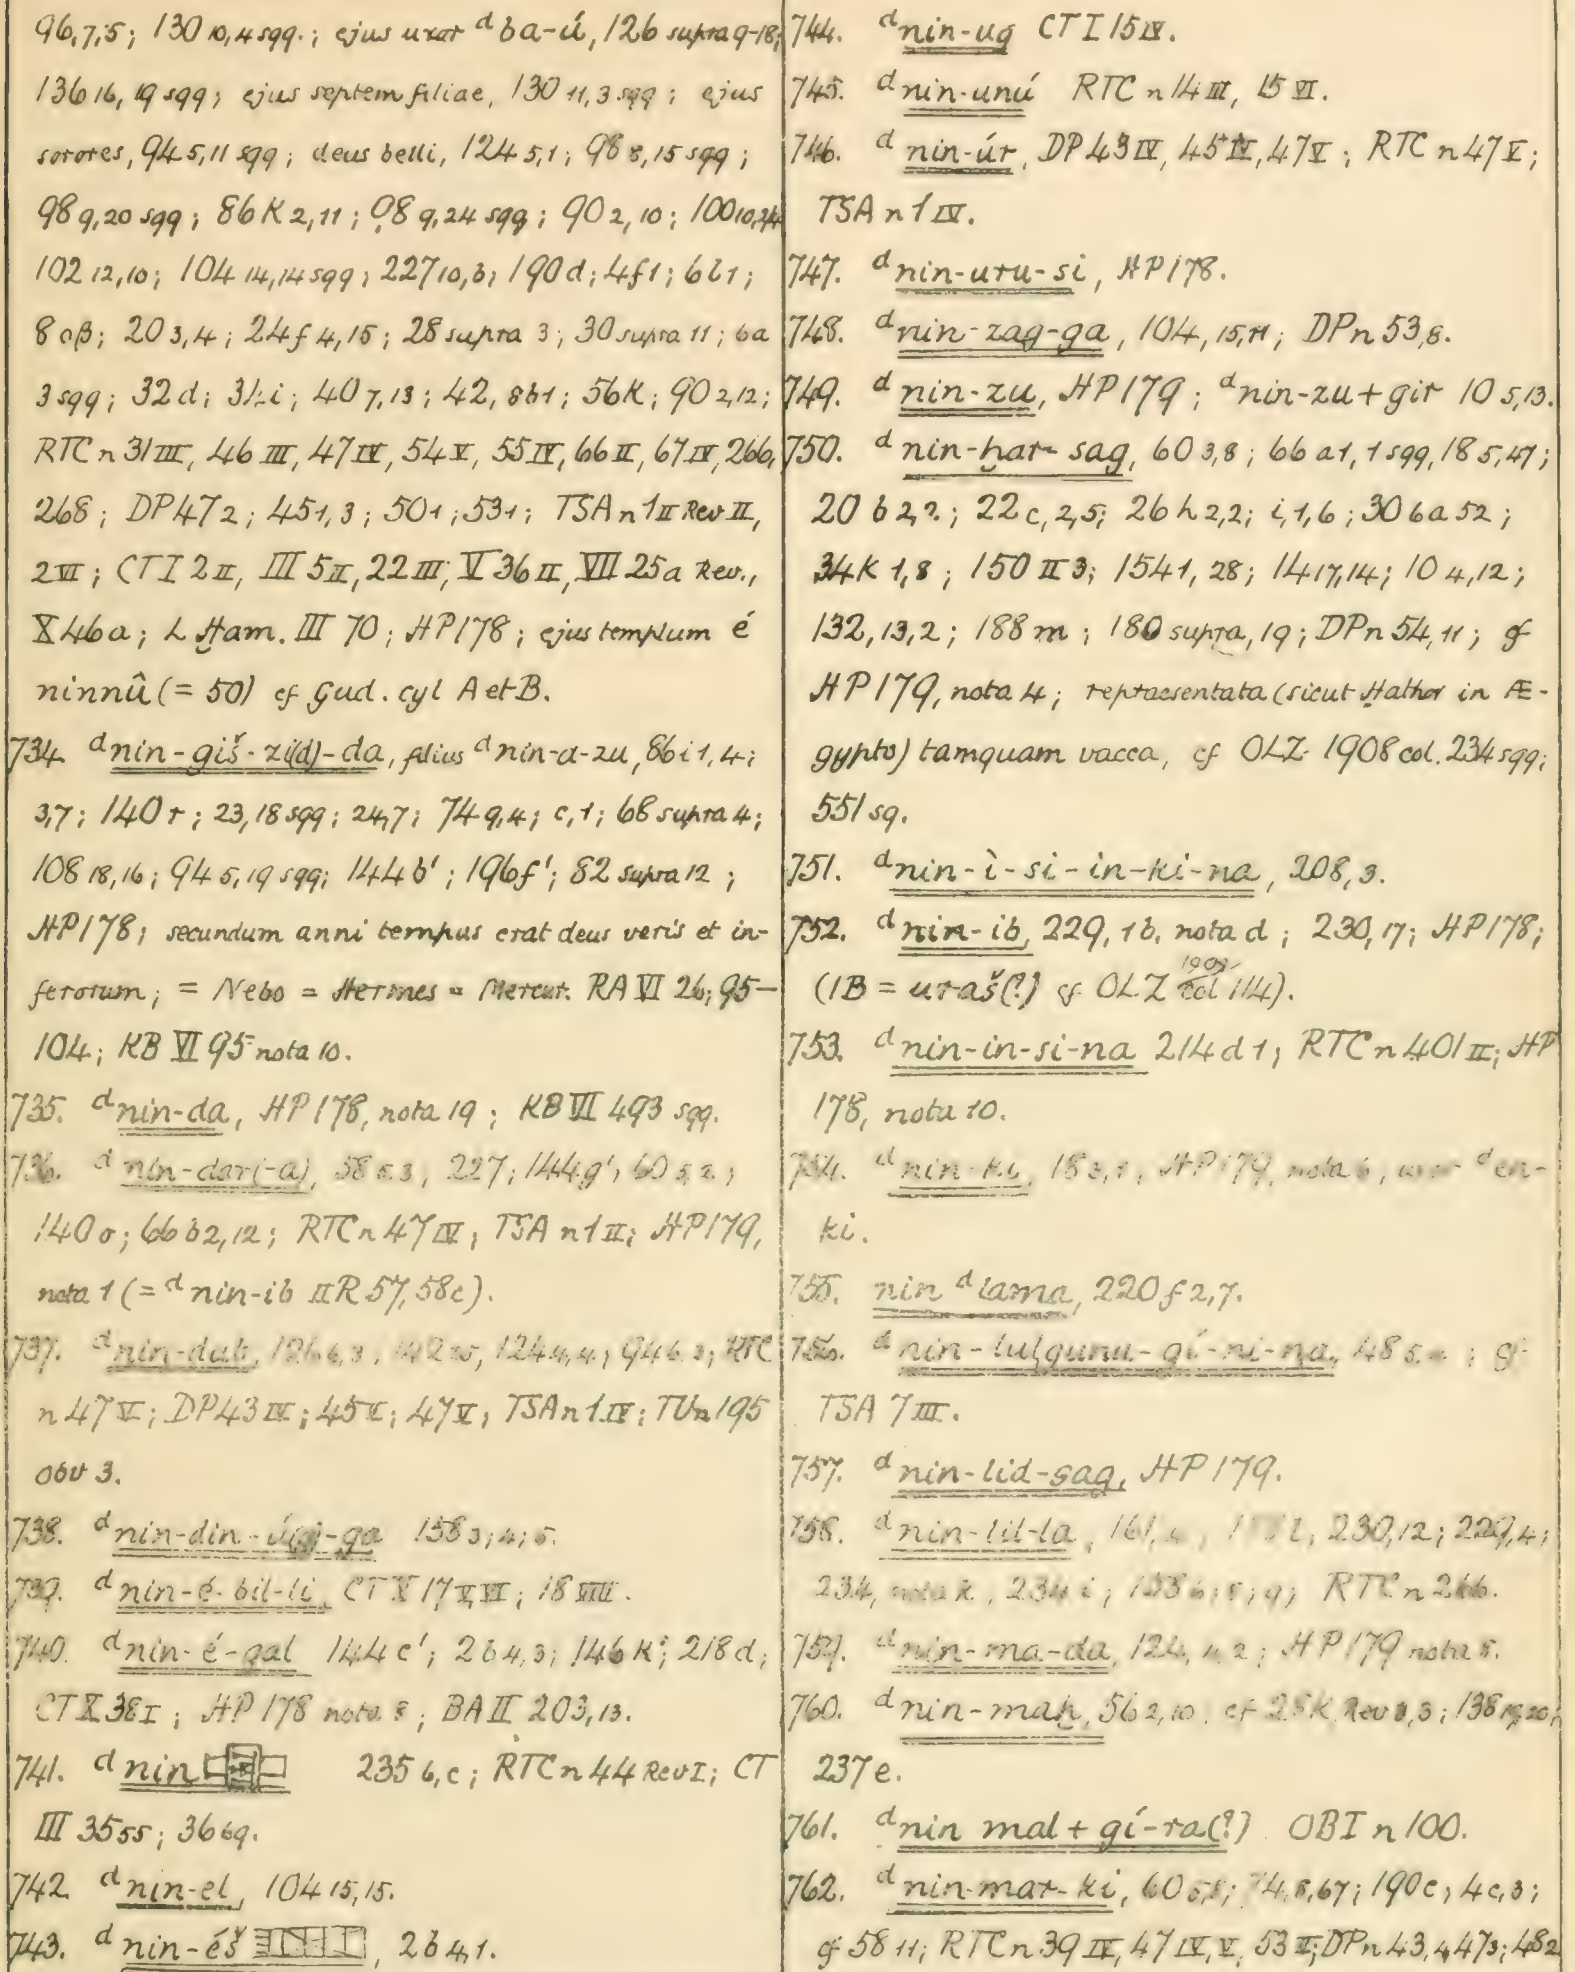 96,7,5; 130 10,4 sqq.; ejus uxor ᵈba-ú, 126 supra 9-18;
136 16, 19 sqq; ejus septem filiae, 130 11,3 sqq; ejus
sorores, 94 5,11 sqq; deus belli, 124 5,1; 98 8,15 sqq;
98 9,20 sqq; 86 K 2,11; 98 9,24 sqq; 90 2,10; 100 10,24
102 12,10; 104 14,14 sqq; 227 10,b; 190 d; 4f1; 6b1;
8 aβ; 20 3,4; 24f 4,15; 28 supra 3; 30 supra 11; 6a
3 sqq; 32 d; 34 i; 40 7,13; 42, 8b1; 56 K; 90 2,12;
RTC n 31 III, 46 III, 47 IV, 54 V, 55 IV, 66 II, 67 IV, 266,
268; DP 47 2; 45 1, 3; 50 1; 53 1; TSA n 1 II Rev II,
2 VI; CT I 2 II, III 5 II, 22 III, V 36 II, VII 25a Rev.,
X 46 a; L Ḫam. III 70; HP 178; ejus templum é
ninnû (= 50) cf Gud. cyl A et B.
734. ᵈnin-giš-zi(d)-da, filius ᵈnin-a-zu, 86 i 1,4;
3,7; 140 r; 23,18 sqq; 24,7; 74 9,4; c,1; 68 supra 4;
108 18,16; 94 5,19 sqq; 144 b'; 196 f'; 82 supra 12;
HP 178; secundum anni tempus erat deus veris et in-
ferorum; = Nebo = Hermes = Mercur. RA VI 26; 95-
104; KB VI 95 nota 10.
735. ᵈnin-da, HP 178, nota 19; KB VI 493 sqq.
736. ᵈnin-dar(-a), 58 5,3, 227; 144 g'; 60 5,2;
140 o; 66 b 2,12; RTC n 47 IV; TSA n 1 II; HP 179,
nota 1 (= ᵈnin-ib II R 57, 58c).
737. ᵈnin-dub, 126 6,3, 142 w, 124 4,4; 94 6,3; RTC
n 47 V; DP 43 IV; 45 V; 47 V; TSA n 1 IV; TU n 195
obv 3.
738. ᵈnin-din-ú(g)-ga 158 3; 4; 5.
739. ᵈnin-é-bil-li, CT X 17 V, VI; 18 VIII.
740. ᵈnin-é-gal 144 c'; 26 4,3; 146 K'; 218 d;
CT X 38 I; HP 178 nota 8; BA II 203,13.
741. ᵈnin 235 b,c; RTC n 44 Rev I; CT
III 35 55; 36 69.
742. ᵈnin-el, 104 15,15.
743. ᵈnin-éš, 26 4,1.
744. ᵈnin-ug CT I 15 IV.
745. ᵈnin-unú RTC n 14 III, 15 VI.
746. ᵈnin-úr, DP 43 IV, 45 IV, 47 V; RTC n 47 V;
TSA n 1 IV.
747. ᵈnin-uru-si, HP 178.
748. ᵈnin-zag-ga, 104, 15,11; DP n 53,8.
749. ᵈnin-zu, HP 179; ᵈnin-zu+gir 10 5,13.
750. ᵈnin-ḫar-sag, 60 3,8; 66 a1, 1 sqq, 18 5,47;
20 b 2,2; 22 c, 2,5; 26 h 2,2; i,1,6; 30 6a 52;
34 K 1,8; 150 II 3; 154 1, 28; 14 17,14; 10 4,12;
132, 13,2; 188 m; 180 supra, 19; DP n 54, 11; cf
HP 179, nota 4; repraesentata (sicut Hathor in Æ-
gypto) tamquam vacca, cf OLZ 1908 col. 234 sqq;
551 sq.
751. ᵈnin-ì-si-in-ki-na, 208, 3.
752. ᵈnin-ib, 229, 1b, nota d; 230, 17; HP 178;
(IB = uraš(?) cf OLZ 1908 col 114).
753. ᵈnin-in-si-na 214 d 1; RTC n 401 II; HP
178, nota 10.
754. ᵈnin-ki, 18 3,1, HP 179, nota 6, uxor ᵈen-
ki.
755. nin ᵈlama, 220 f 2,7.
756. ᵈnin-lulgunu-gí-ni-na, 48 5; cf
TSA 7 III.
757. ᵈnin-lid-sag, HP 179.
758. ᵈnin-lil-la, 161, 230,12; 229,4;
234, nota k, 234 i; 158 6; 8; 9; RTC n 266.
759. ᵈnin-ma-da, 124, 4,2; HP 179 nota 5.
760. ᵈnin-maḫ, 56 2,10, cf 28 K Rev 3,3; 138 19,20;
237 e.
761. ᵈnin mal + gí-ra(?) OBI n 100.
762. ᵈnin-mar-ki, 60 5,8; 74,8,67; 190 c; 4c,3;
cf 58 11; RTC n 39 IV, 47 IV, V, 53 II; DP n 43,4 47 3; 48 2